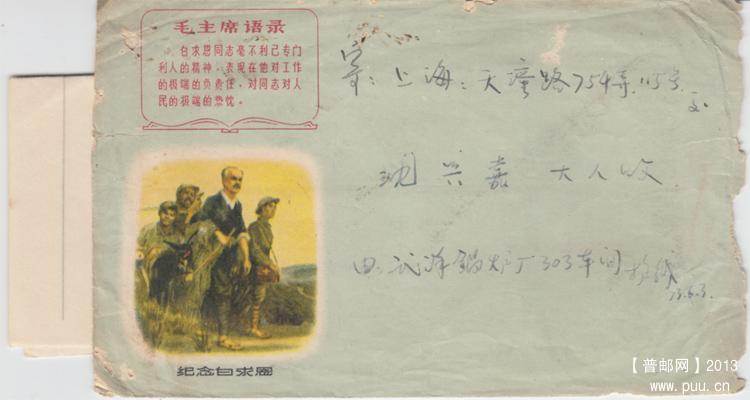 毛主席语录
白求恩同志毫不利己专门
利人的精神，表现在他对工作
的极端的负责任，对同志对人
民的极端的热忱。
寄：上海：天潼路754弄115号
交
沈兴嘉 大人收
由：武汉锅炉厂303车间
73.6.3.
纪念白求恩
【普邮网】2013
www.puu.cn